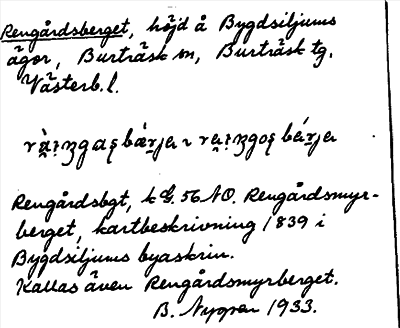 Rengårdsberget, höjd å Bygdsiljums
ägor, Burträsk sn, Burträsk tg,
Västerb. l.
Rengårdsbgt, k E. 56 NO. Rengårdsmyr-
berget, kartbeskrivning 1839 i
Bygdsiljums byaskrin.
Kallas även Rengårdsmyrberget.
B. Nygren 1933.